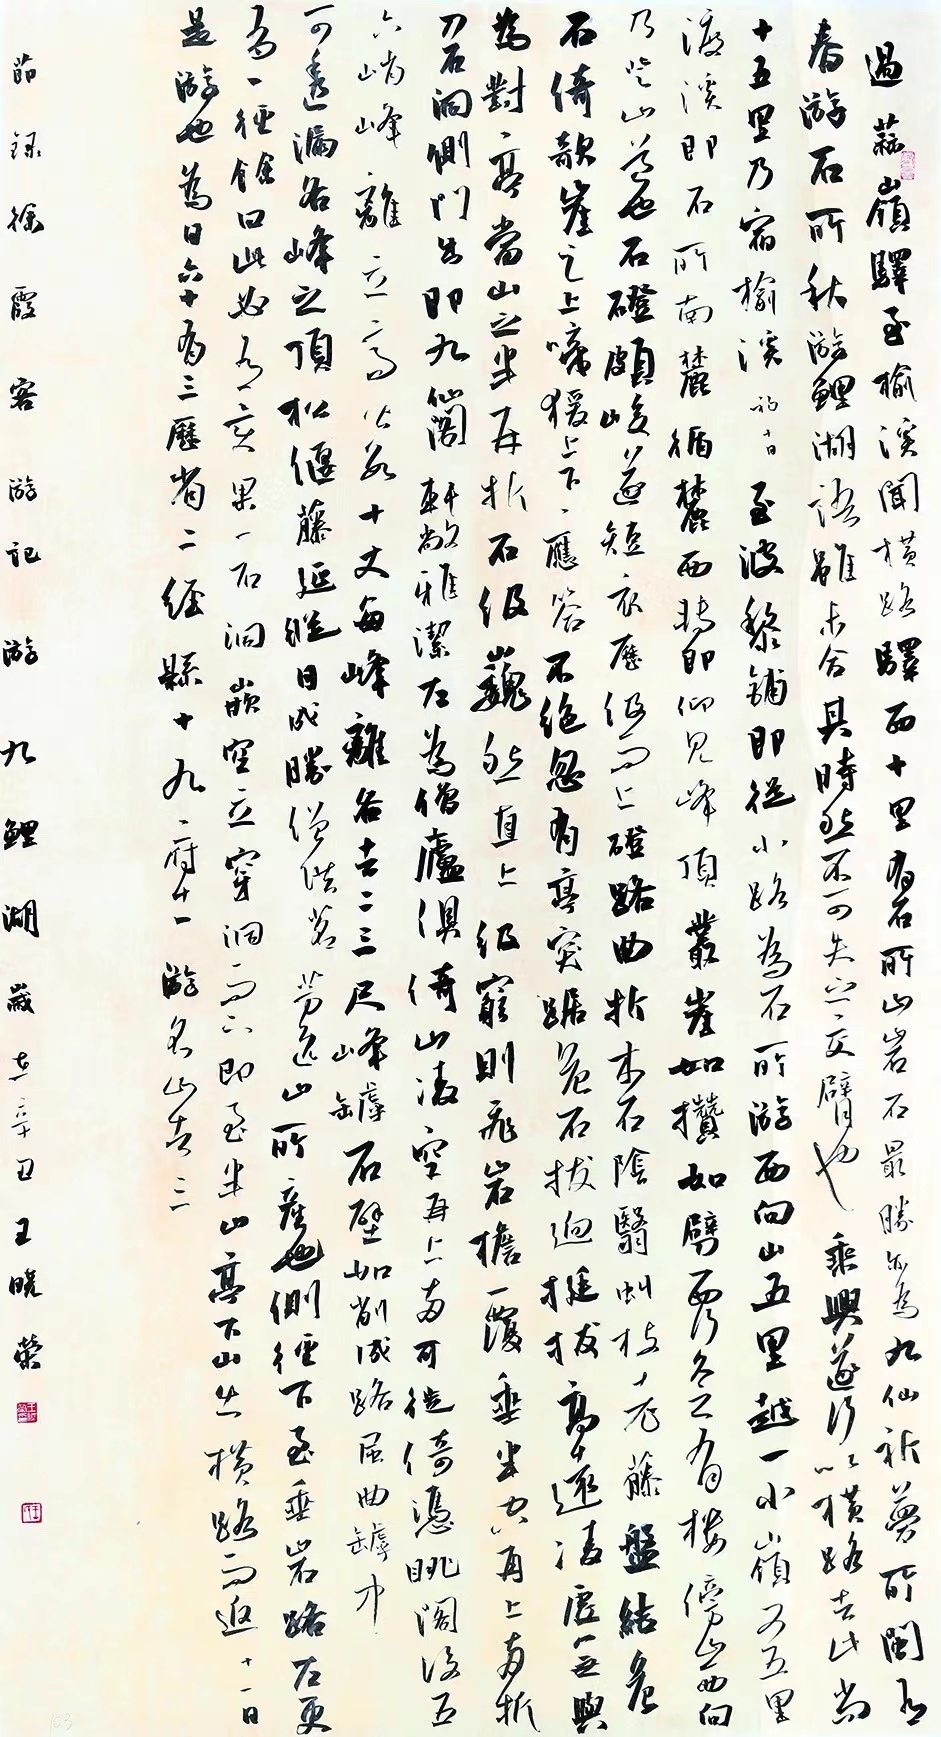 過蒜嶺驛至榆溪聞橫路驛西十里有石所山岩石最勝亦為九仙祈夢所閩有
春游石所秋游鯉湖語雖未合其時然不可失之交臂也乘興遂行以橫路去此尚
十五里乃宿榆溪初十日至波黎鋪即從小路為石所游西向山五里越一小嶺又五里
渡溪即石所南麓循麓西轉即仰見峰頂叢崖如攢如劈西行久之有樓傍山西向
乃登山道也石磴頗峻遂短衣歷級而上磴路曲折木石陰翳虬枝老藤盤結危
石倚欹崖之上啼猿上下應答不絕忽有亭突踞危石拔迥挺拔高迷凌虛無與
為對亭當山之半再折石級巍然直上級窮則飛岩檐覆垂半空再上兩折
刀石洞側門出即九仙閣軒敞雅潔左為僧廬俱倚山凌空再上兩可徙倚憑眺閣後五
六峭峰離立高皆數十丈每峰離各去二三尺峰罅石壁如削成路屈曲罅中
可透漏各峰之頂松偃藤延縱目成勝僧供茗芳逸山所產也側徑下至垂岩路左更
為一徑餘曰此必有異果一石洞嵌空立穿洞而下即至半山亭下山出橫路而返十一日
是游也為日六十有三歷省二經縣十九府十一游名山者三
節錄徐霞客游記游九鯉湖歲在辛丑王曉榮